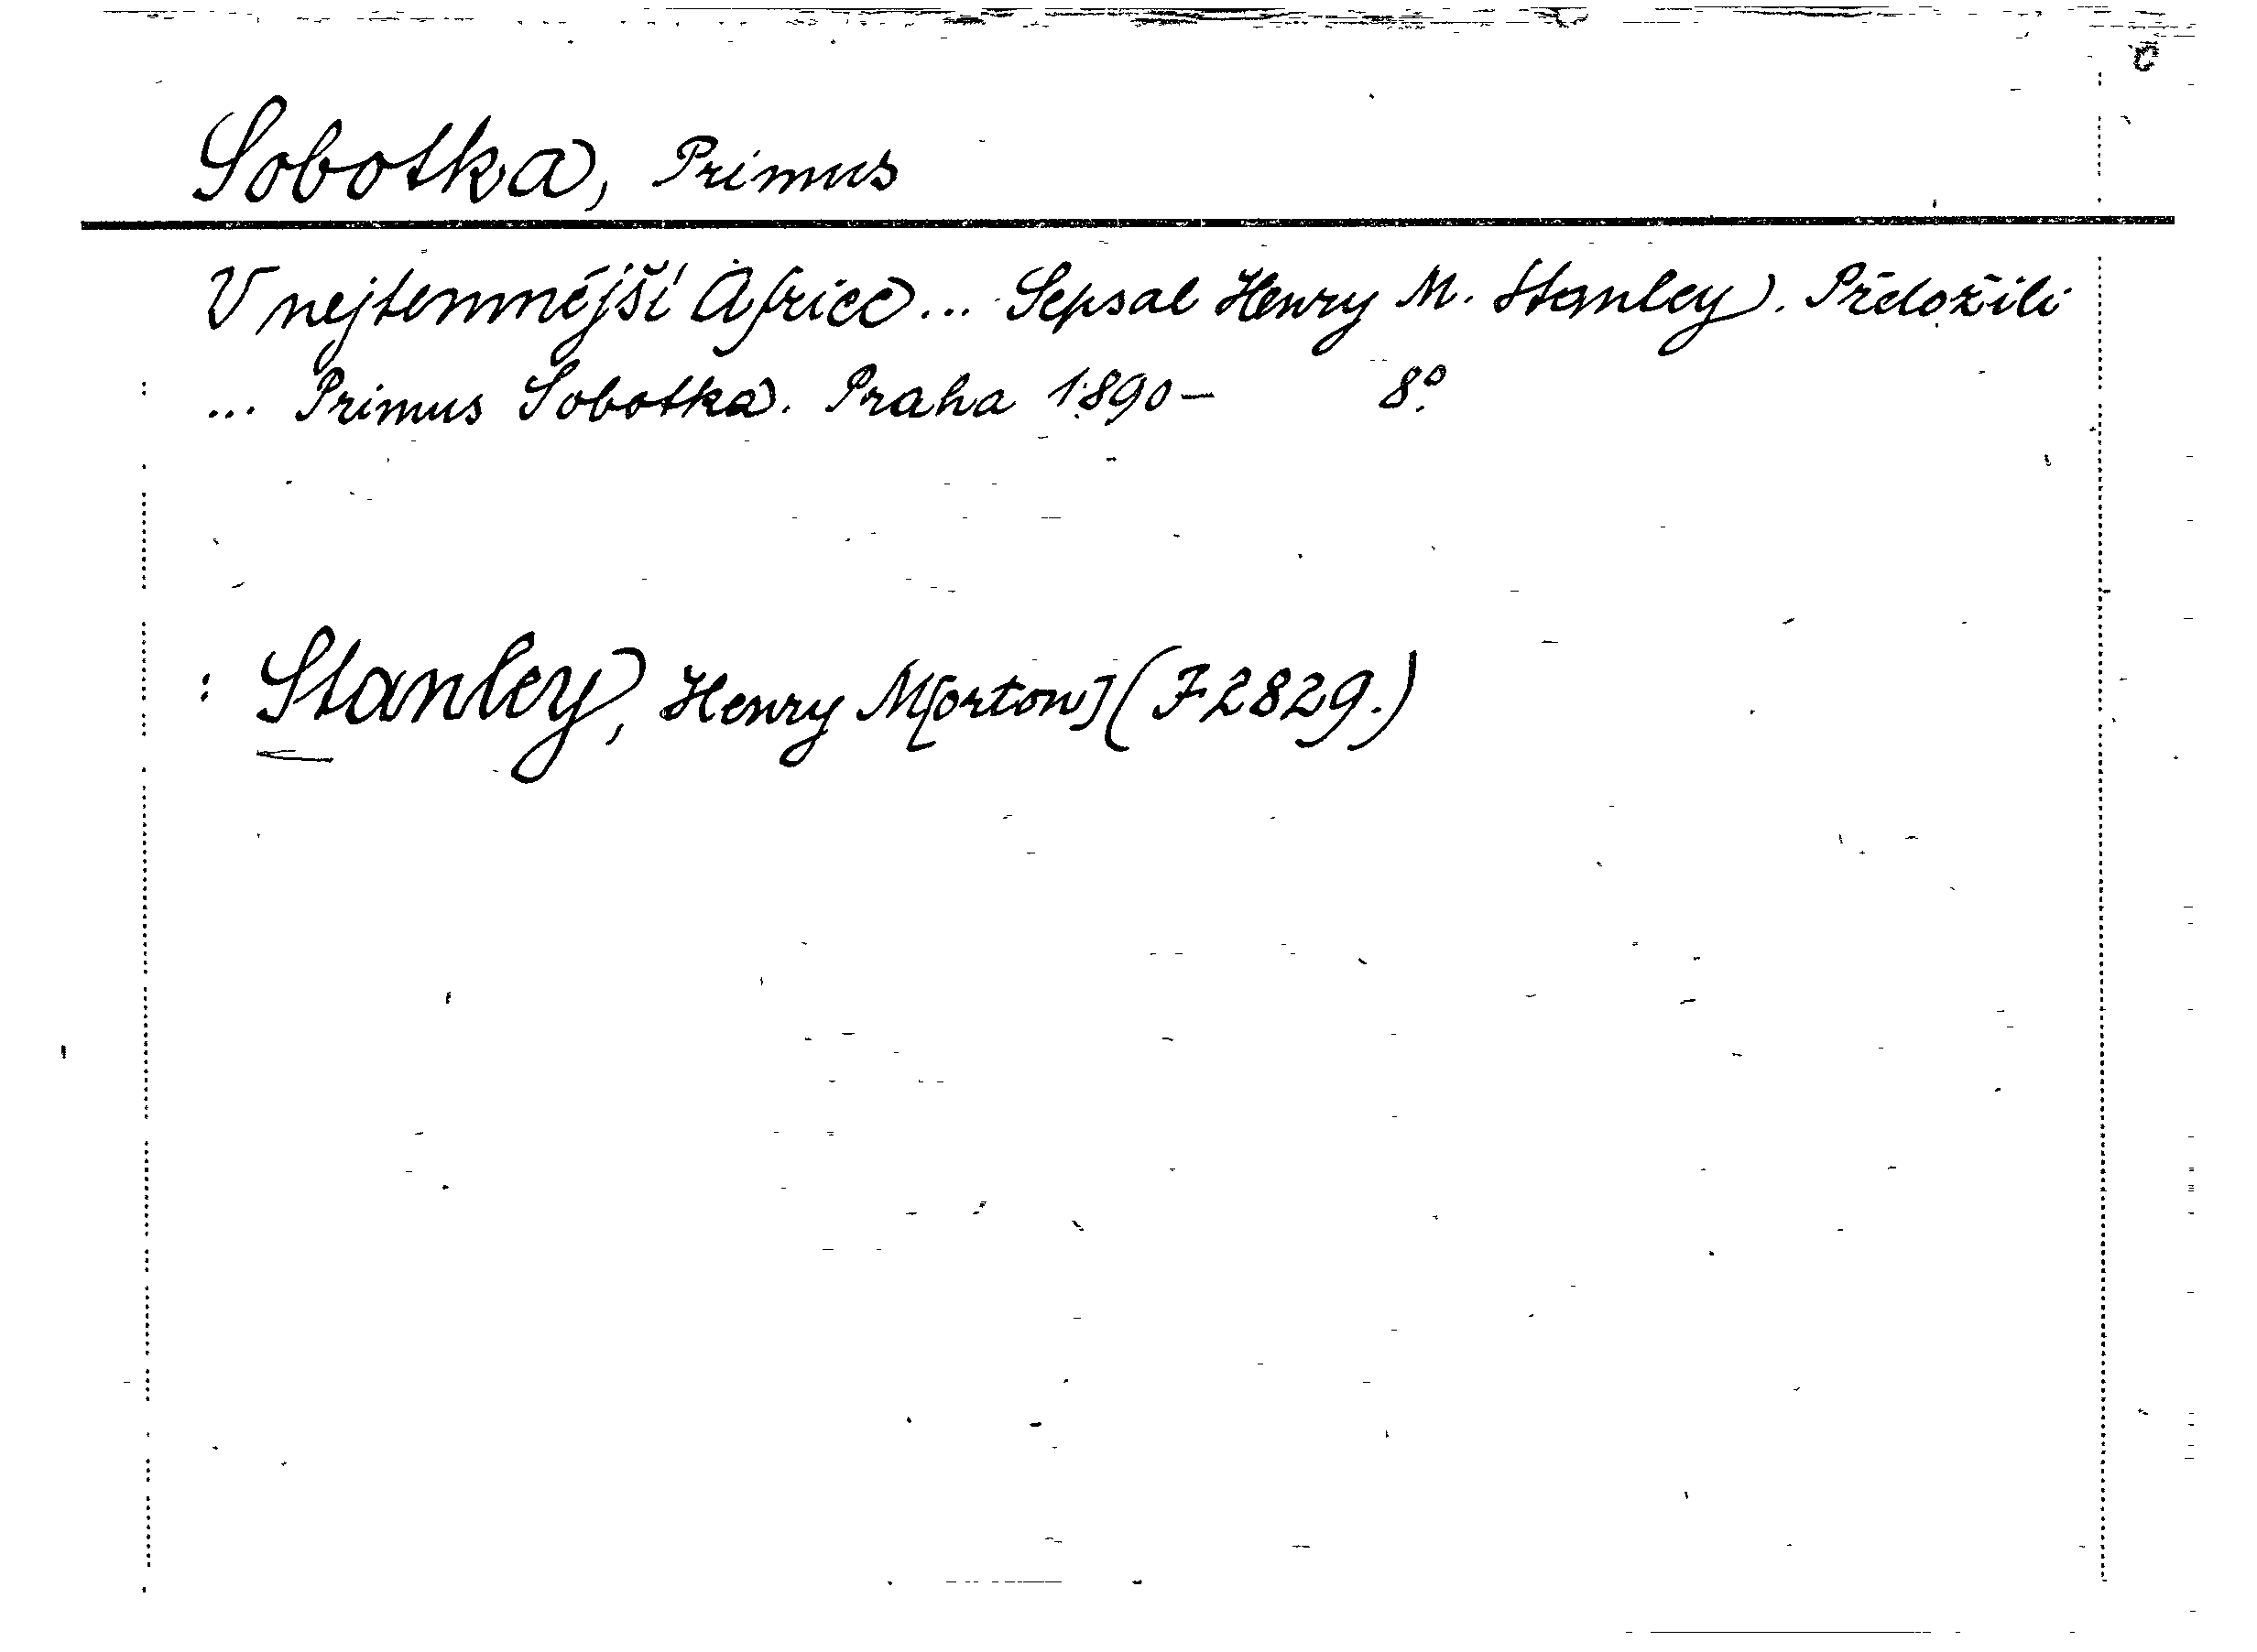 Sobotka, Primus
V nejtemnější Africe... Sepsal Henry M. Stanley. Přeložili
... Primus Sobotka. Praha 1890– 8°.
: Stanley, Henry M[orton] (F 2829.)